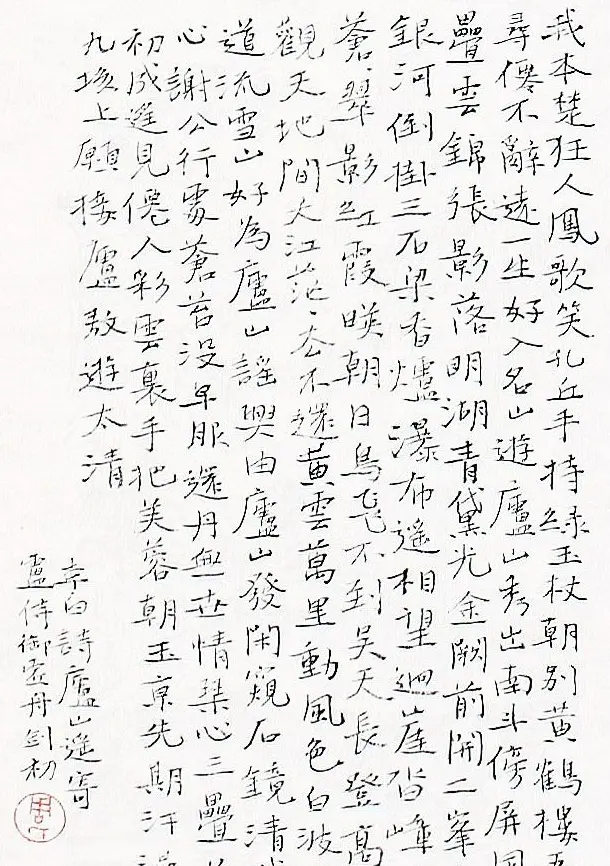 我本楚狂人鳳歌笑孔丘手持綠玉杖朝別黃鶴樓五
尋僊不辭遠一生好入名山遊廬山秀出南斗傍屏風
疊雲錦張影落明湖青黛光金闕前開二峯
銀河倒掛三石梁香爐瀑布遙相望迴崖沓嶂
蒼〻翠影紅霞暎朝日鳥飛不到吳天長登高
觀天地間大江茫〻去不還黃雲萬里動風色白波
道流雪山好為廬山謠興由廬山發閑窺石鏡清
心謝公行處蒼苔沒早服還丹無世情琴心三疊
初成遙見僊人彩雲裏手把芙蓉朝玉京先期汗漫
九垓上願接盧敖遊太清
李白詩廬山遙寄
盧侍御虛舟劍初